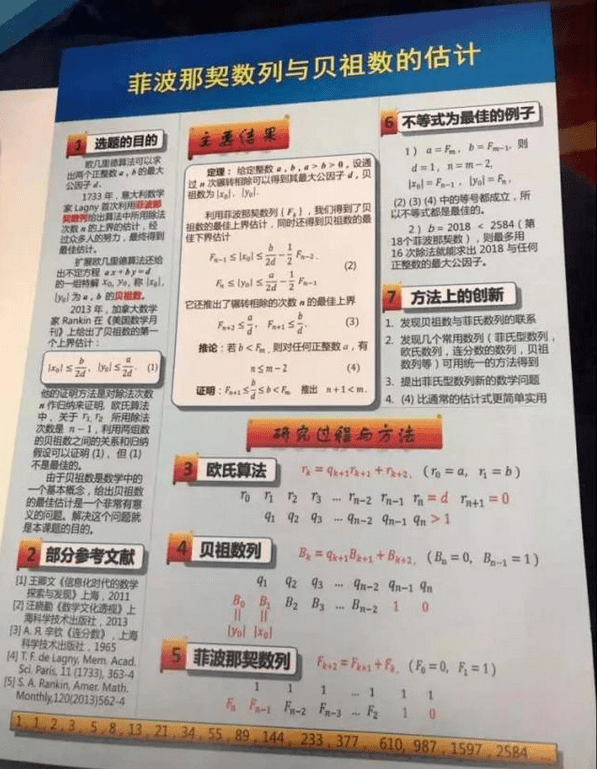 菲波那契数列与贝祖数的估计
1 选题的目的
欧几里德算法可以求
出两个正整数 a , b 的最大
公因子 d.
1733 年，意大利数学
家 Lagny 首次利用菲波那
契数列给出算法中所用除法
次数 n 的上界的估计，经
过众多人的努力，最终得到
最佳估计。
扩展欧几里德算法还给
出不定方程 ax + by = d
的一组特解 x₀, y₀, 称 |x₀|,
|y₀| 为 a , b 的贝祖数。
2013 年，加拿大数学
家 Rankin 在《美国数学月
刊》上给出了贝祖数的第一
个上界估计：
|x₀| ≤ b/2d, |y₀| ≤ a/2d. (1)
他的证明方法是对除法次数
n 作归纳来证明, 欧氏算法
中，关于 r₁, r₂ 所用除法
次数是 n − 1，利用两组数
的贝祖数之间的关系和归纳
假设可以证明 (1)、但 (1)
不是最佳的。
由于贝祖数是数学中的
一个基本概念，给出贝祖数
的最佳估计是一个非常有意
义的问题。解决这个问题就
是本课题的目的。
2 部分参考文献
[1] 王卿文《信息化时代的数学
探索与发现》上海，2011
[2] 汪晓勤《数学文化透视》上
海科学技术出版社，2013
[3] А. Я. 辛钦《连分数》，上海
科学技术出版社，1965
[4] T. F. de Lagny, Mem. Acad.
Sci. Paris, 11 (1733), 363-4
[5] S. A. Rankin, Amer. Math.
Monthly,120(2013)562-4
主要结果
定理：给定整数 a , b , a > b > 0 , 设通
过 n 次辗转相除可以得到其最大公因子 d , 贝
祖数为 |x₀|, |y₀|.
利用菲波那契数列 { Fₖ } , 我们得到了贝
祖数的最佳上界估计，同时还得到贝祖数的最
佳下界估计
Fₙ₋₁ ≤ |x₀| ≤ b/2d − 1/2 Fₙ₋₂.
(2)
Fₙ ≤ |y₀| ≤ a/2d − 1/2 Fₙ₋₁
它还推出了辗转相除的次数 n 的最佳上界
Fₙ₊₂ ≤ a/d, Fₙ₊₁ ≤ b/d. (3)
推论：若 b < Fₘ , 则对任何正整数 a , 有
n ≤ m − 2 (4)
证明：Fₙ₊₁ ≤ b/d ≤ b < Fₘ 推出 n + 1 < m.
6 不等式为最佳的例子
1 ) a = Fₘ , b = Fₘ₋₁, 则
d = 1, n = m − 2,
|x₀| = Fₙ₋₁ , |y₀| = Fₙ ,
(2) (3) (4) 中的等号都成立，所
以不等式都是最佳的。
2 ) b = 2018 < 2584（第
18个菲波那契数），则最多用
16 次除法就能求出 2018 与任何
正整数的最大公因子。
7 方法上的创新
1. 发现贝祖数与菲氏数列的联系
2. 发现几个常用数列（菲氏型数列，
欧氏数列，连分数的数列，贝祖
数列等）可用统一的方法得到
3. 提出菲氏型数列新的数学问题
4. (4) 比通常的估计式更简单实用
研究过程与方法
3 欧氏算法 rₖ = qₖ₊₁rₖ₊₁ + rₖ₊₂, (r₀ = a, r₁ = b)
r₀ r₁ r₂ r₃ ... rₙ₋₂ rₙ₋₁ rₙ = d rₙ₊₁ = 0
q₁ q₂ q₃ ... qₙ₋₂ qₙ₋₁ qₙ > 1
4 贝祖数列 Bₖ = qₖ₊₁Bₖ₊₁ + Bₖ₊₂, (Bₙ = 0, Bₙ₋₁ = 1)
q₁ q₂ q₃ ... qₙ₋₂ qₙ₋₁ qₙ
B₀ B₁ B₂ B₃ ... Bₙ₋₂ 1 0
|| ||
|y₀| |x₀|
5 菲波那契数列 Fₖ₊₂ = Fₖ₊₁ + Fₖ, (F₀ = 0, F₁ = 1)
1 1 1 ... 1 1 1
Fₙ Fₙ₋₁ Fₙ₋₂ Fₙ₋₃ ... F₂ 1 0
1 , 1 , 2 , 3 , 5 , 8 , 13 , 21 , 34 , 55 , 89 , 144 , 233 , 377 , 610, 987 , 1597 , 2584 ...